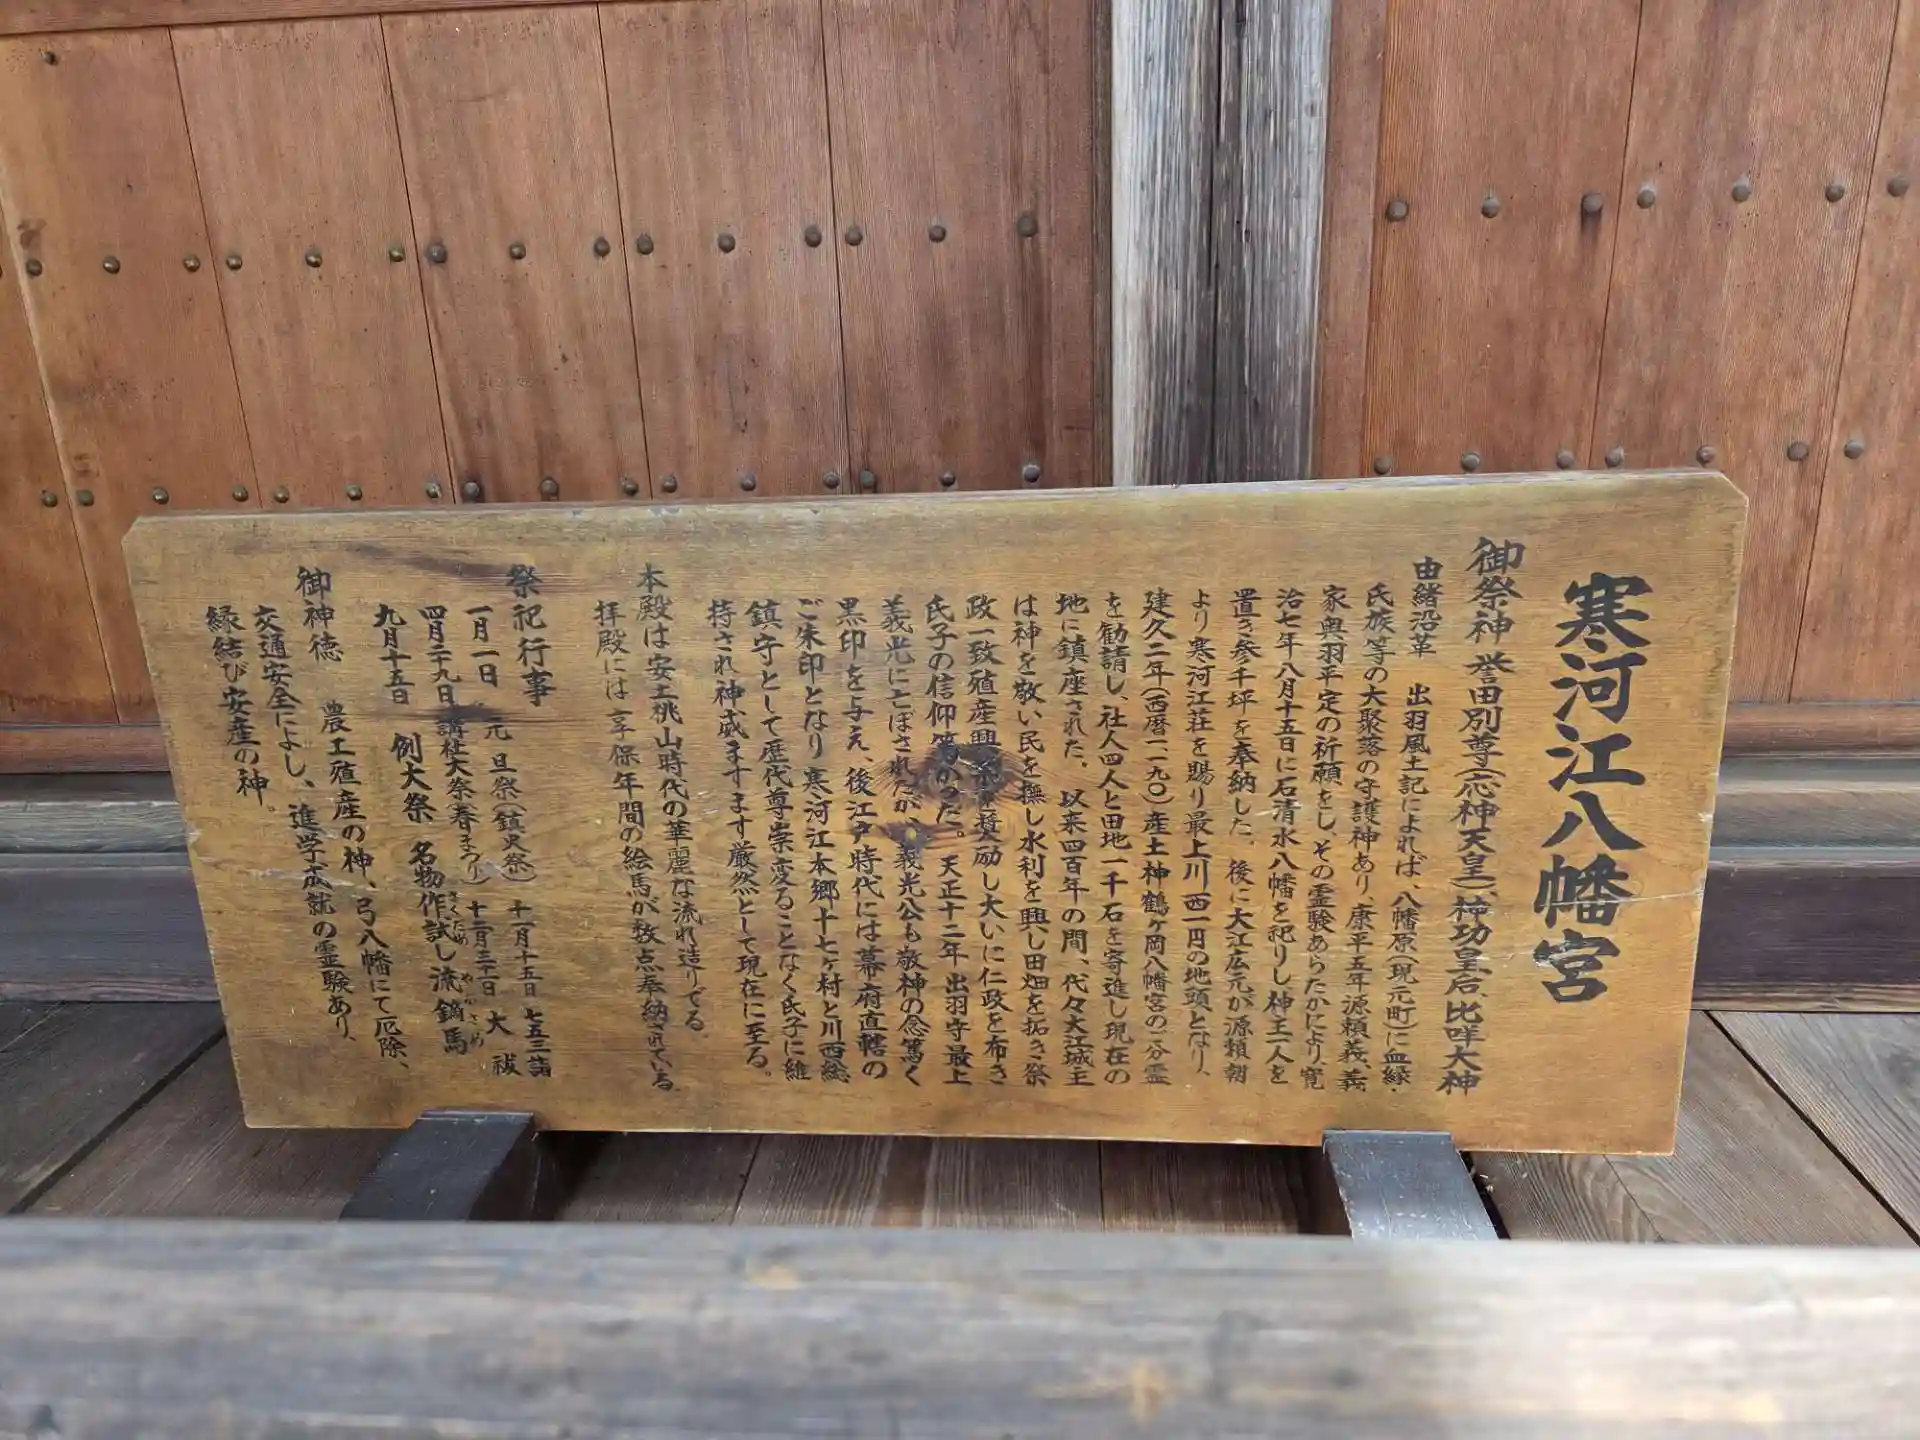 寒河江八幡宮
御祭神 誉田別尊(応神天皇)、神功皇后、比咩大神
由緒沿革 出羽風土記によれば、八幡原(現元町)に血縁・
氏族等の大聚落の守護神あり、康平五年源頼義、義
家奥羽平定の祈願をし、その霊験あらたかにより、寛
治七年八月十五日に石清水八幡を祀りし、神主一人を
置き参千坪を奉納した。後に大江広元が源頼朝
より寒河江荘を賜り最上川西一円の地頭となり、
建久二年(西暦一、一九〇)産土神鶴ヶ岡八幡宮のご分霊
を勧請し、社人四人と田地一千石を寄進し現在の
地に鎮座された。以来四百年の間、代々大江城主
は神を敬い民を撫し水利を興し田畑を拓き祭
政一致殖産興業を奨励し大いに仁政を布き
氏子の信仰篤かった。天正十二年出羽守最上
義光にとぼされたが、義光公も敬神の念篤く
黒印を与え、後江戸時代には幕府直轄の
ご朱印となり寒河江本郷十七ヶ村と川西総
鎮守として歴代尊崇変ることなく氏子に維
持され神威ますます厳然として現在に至る。
本殿は安土桃山時代の華麗な流れ造りでる。
拝殿には享保年間の絵馬が数点奉納されている。
祭祀行事
一月一日 元旦祭(鎮火祭) 十一月十五日 七五三詣
四月二十九日 講社大祭(春まつり) 十二月三十一日 大祓
九月十五日 例大祭 名物作試し流鏑馬
さくため やぶさめ
御神徳 農工殖産の神、弓八幡にて厄除、
交通安全によし、進学成就の霊験あり、
縁結び安産の神。